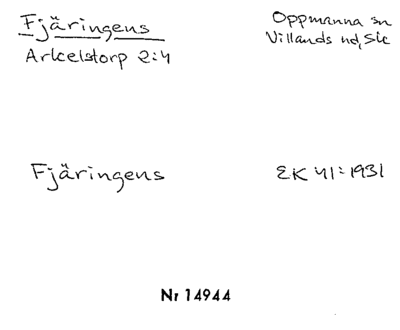 Fjäringens
Oppmanna sn
Arkelstorp 2:4
Villands hd, Sk
Fjäringens
EK 41:1931
Nr 14944